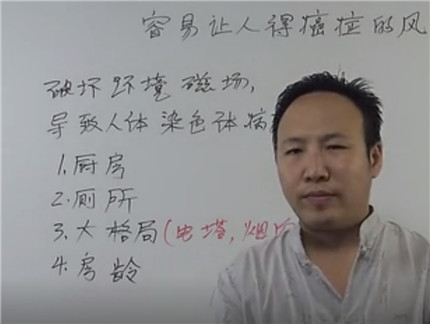 容易让人得癌症的风
破坏环境磁场,
导致人体染色体病
1.厨房
2.厕所
3.大格局(电塔,烟
4.房龄